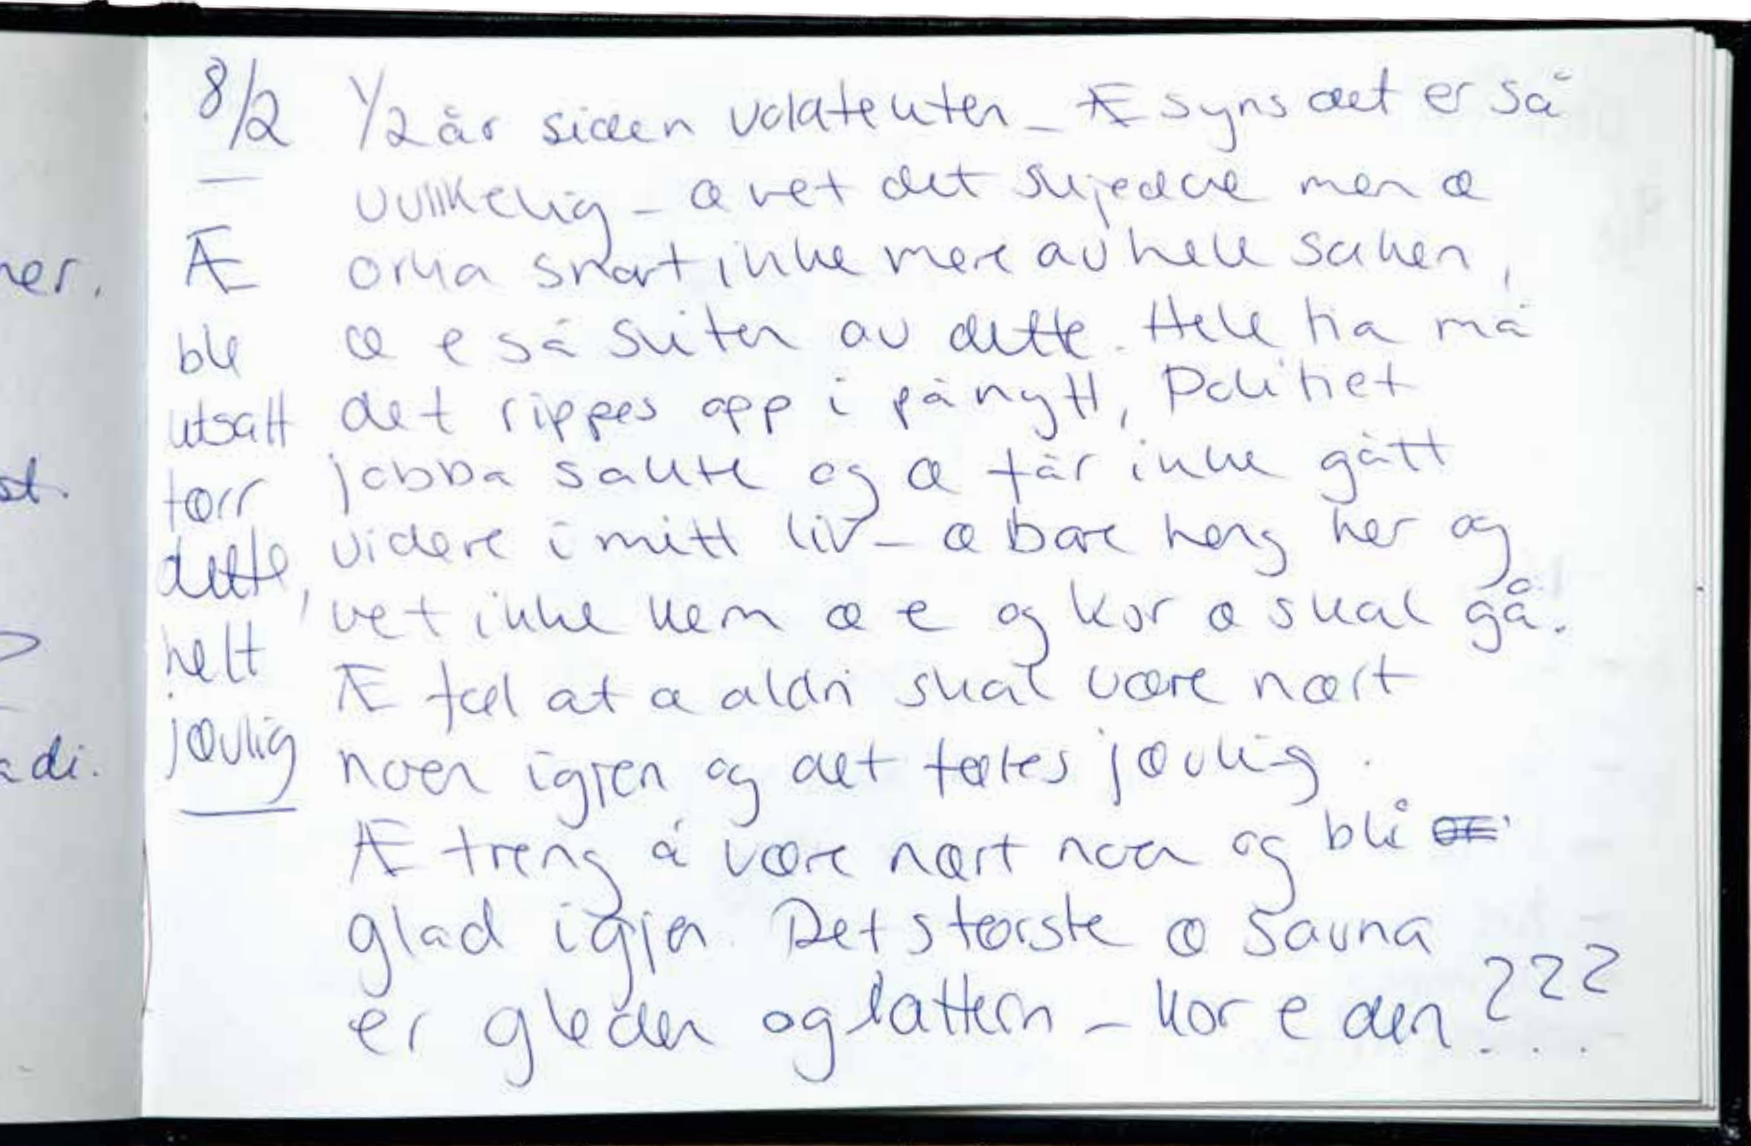 8/2 1/2 år siden voldtekten - Æ syns det er så
uvirkelig - æ vet det skjedde men æ
orka snart ikke mere av hele saken,
æ e så sliten av dette. Hele tia må
det rippes opp i på nytt, Politiet
jobba sakte og æ får ikke gått
videre i mitt liv - æ bare heng her og
vet ikke kem æ e og kor æ skal gå.
Æ føl at æ aldri skal være nært
noen igjen og det føles jævlig.
Æ treng å være nært noen og bli
glad igjen. Det største æ savna
er gleden og lattern - kor e den ???
Æ
ble
utsatt
før
dette,
helt
jævlig
ner.
st.
?
adi.